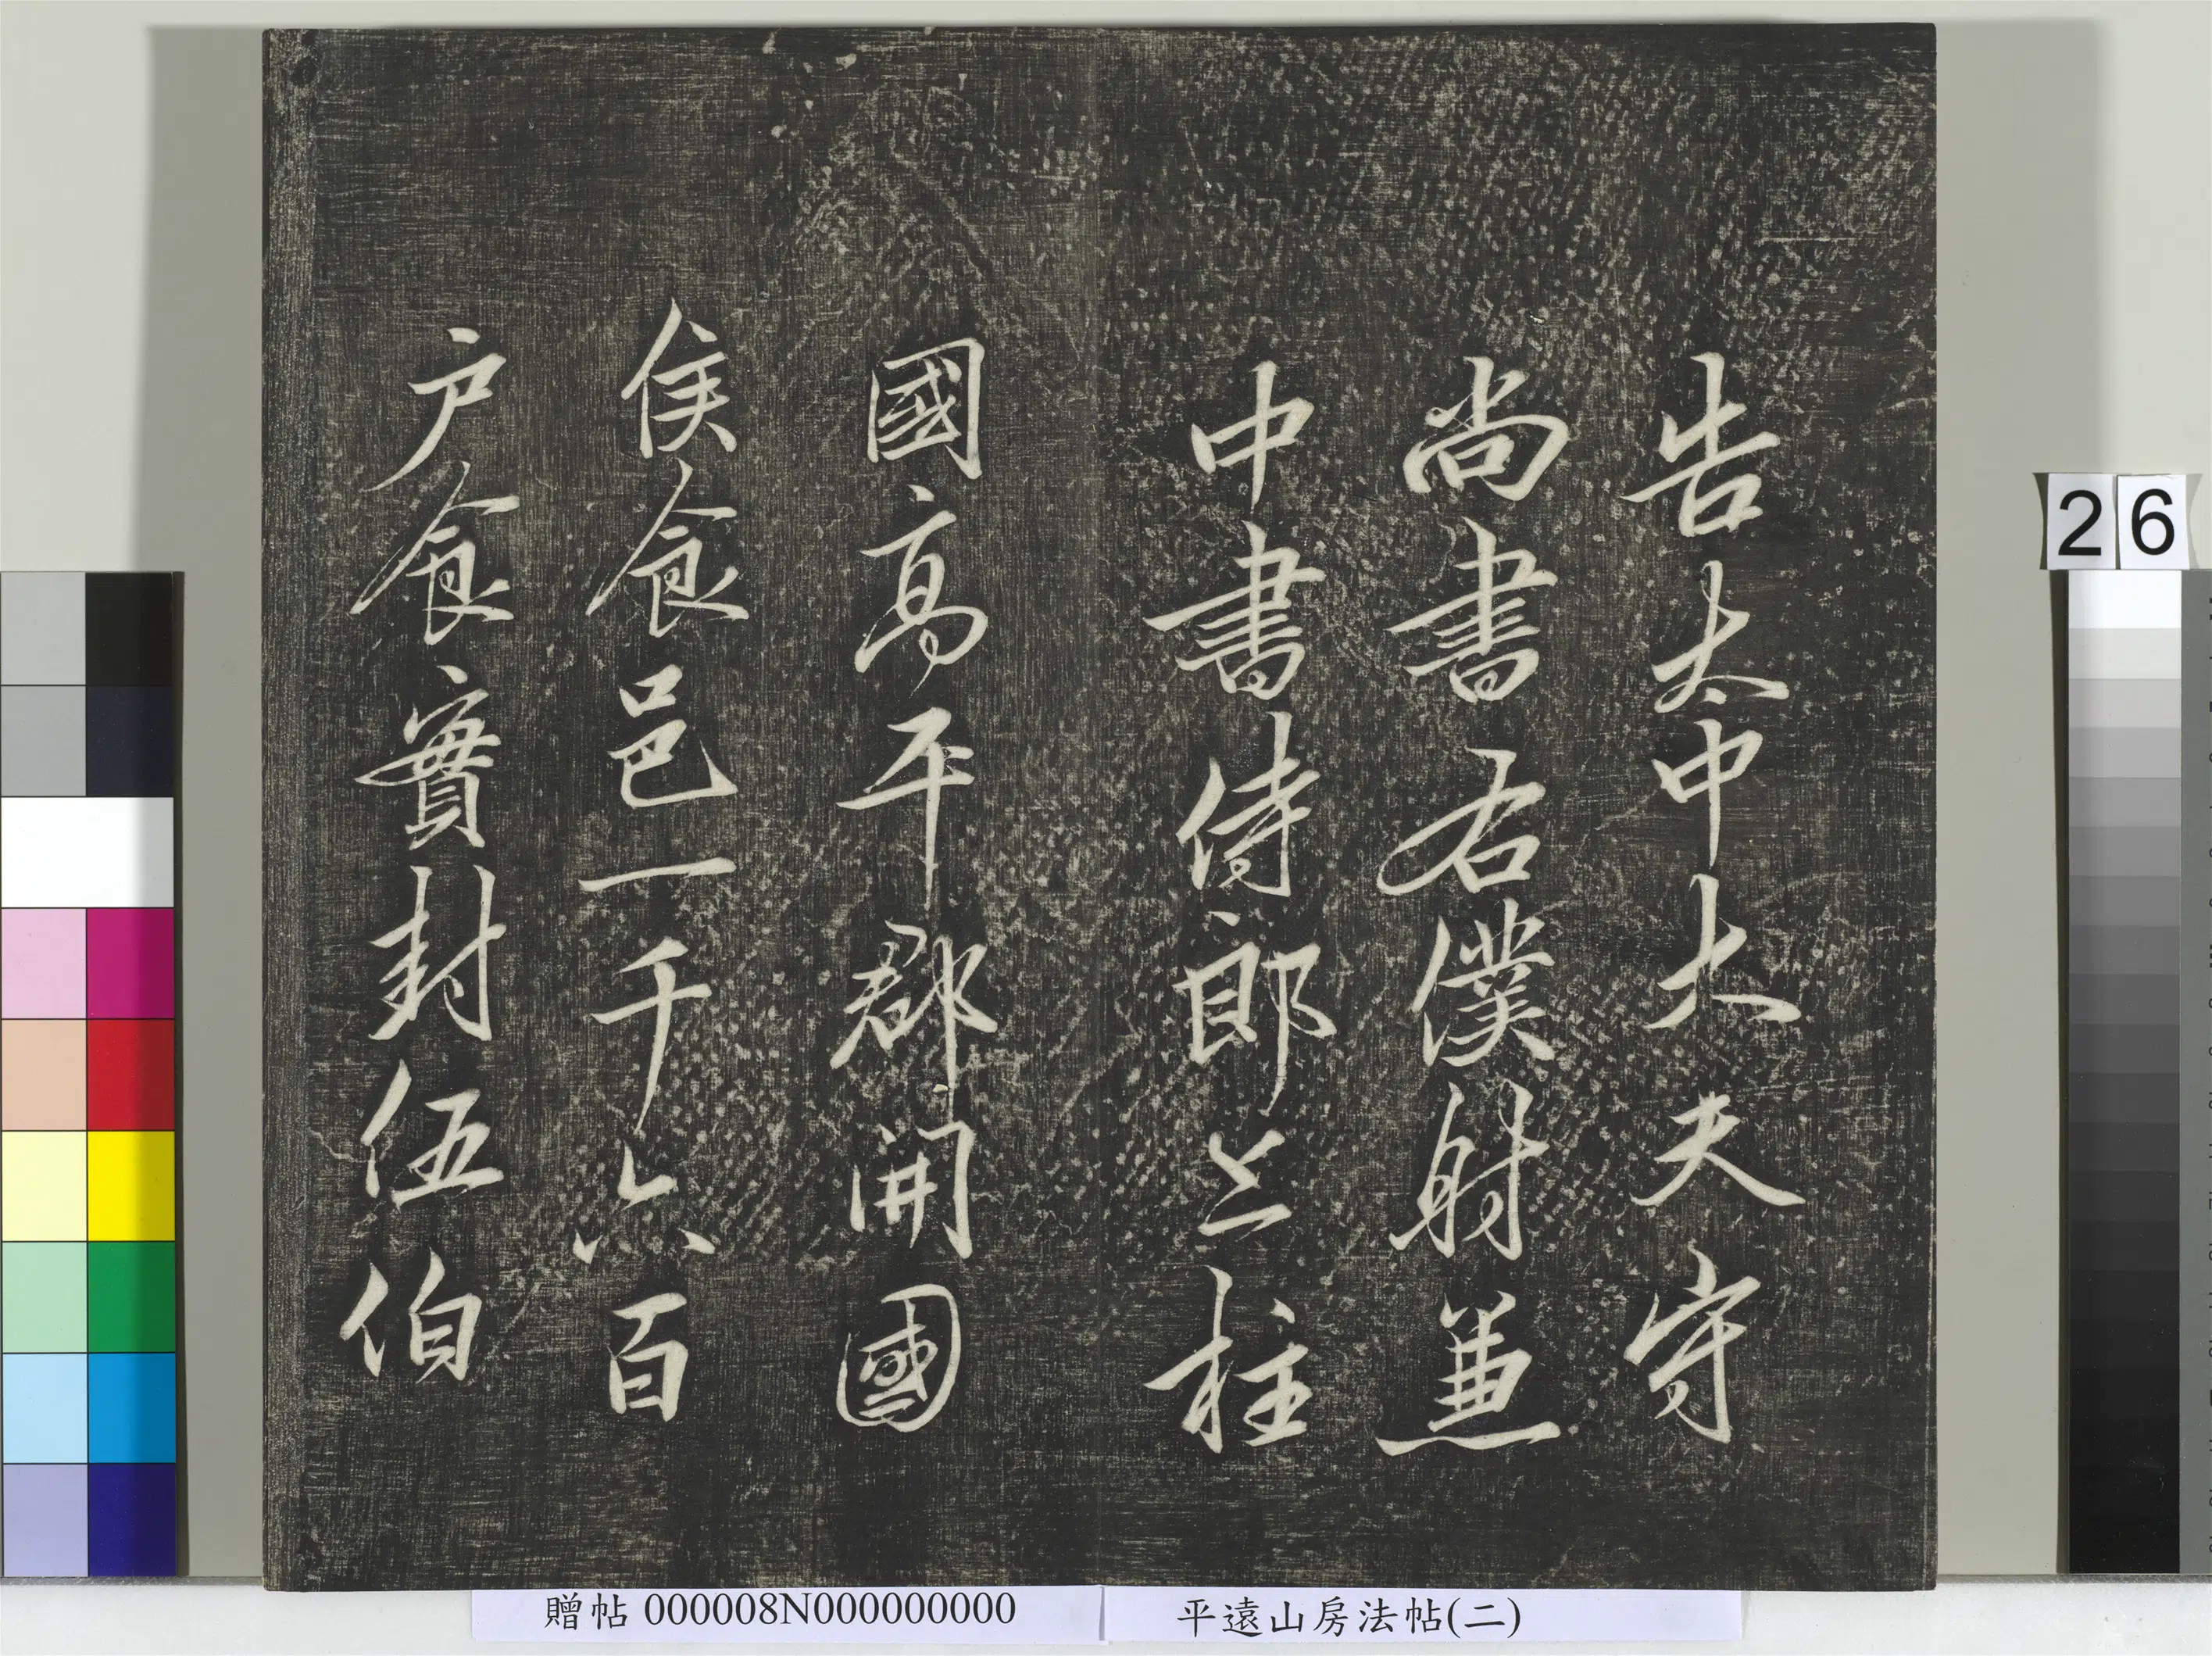 告太中大夫守
尚書右僕射兼
中書侍郎上柱
國高平郡開國
侯食邑一千六百
户食實封伍伯
26
贈帖 000008N000000000
平遠山房法帖(二)